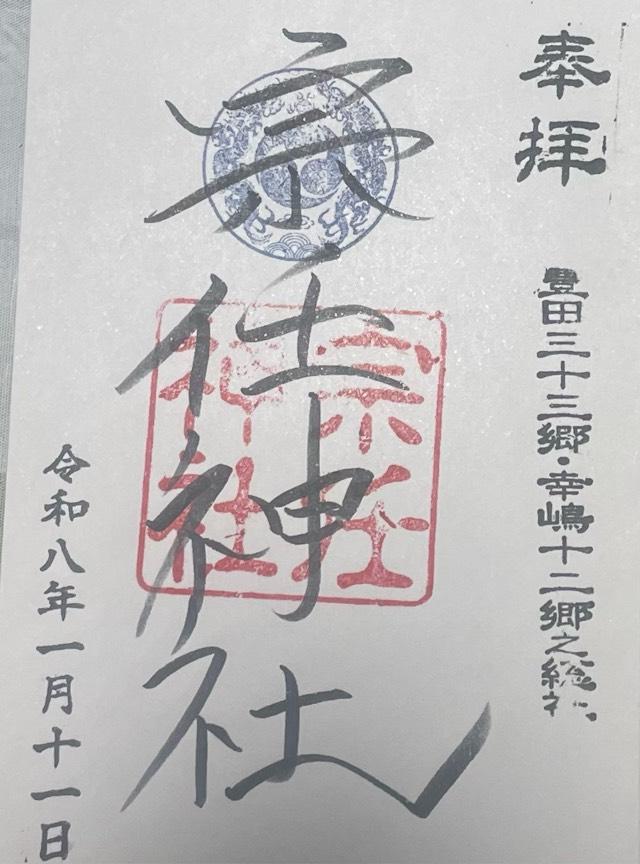 奉拝
豊田三十三郷・幸嶋十二郷之総社
宗任神社
宗任
神社
令和八年一月十一日